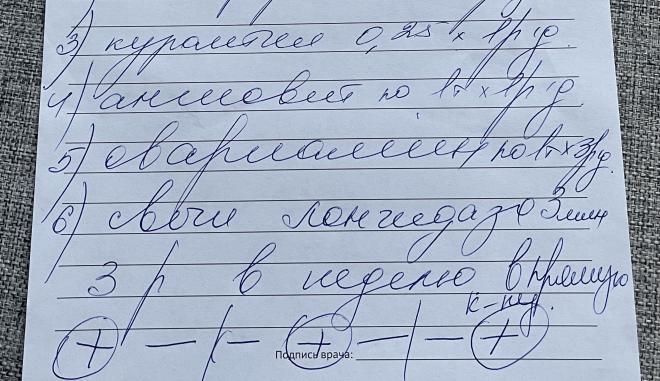 3) курантил 0,25 х 1 р/д.
4) ангиовит по 1т х 1 р/д
5) овариамин по 1т х 3 р/д.
6) свечи лонгидаза 3 млн
3 р в неделю в прямую
к-ку.
+ — / — + — / — +
Подпись врача: